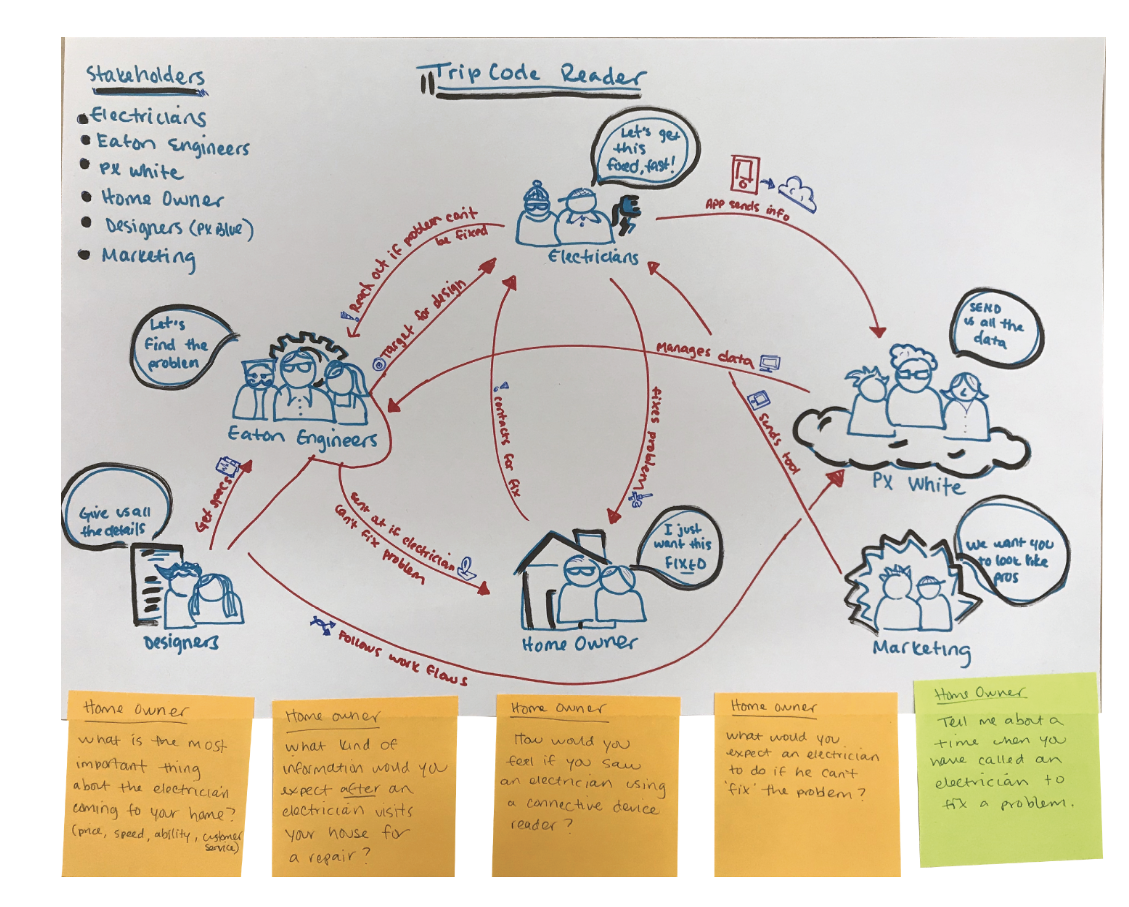 Stakeholders
Electricians
Eaton Engineers
PX White
Home Owner
Designers (PX Blue)
Marketing
Trip Code Reader
Let's get
this
fixed, fast!
Electricians
App sends info
Reach out if problem can't
be fixed
Target for design
Let's
find the
problem
Eaton Engineers
Manages data
SEND
us all the
data
PX White
contacts for fix
fixes problem
sends tool
Get specs
Give us all
the details
Designers
sent at if electrician
can't fix problem
I just
want this
FIXED
Home Owner
We want you
to look like
pros
Marketing
Follows work flows
Home Owner
what is the most
important thing
about the electrician
coming to your home?
(price, speed, ability, customer
service)
Home owner
what kind of
information would you
expect after an
electrician visits
your house for
a repair?
Home Owner
How would you
feel if you saw
an electrician using
a connective device
reader?
Home owner
what would you
expect an electrician
to do if he can't
'fix' the problem?
Home Owner
Tell me about a
time when you
have called an
electrician to
fix a problem.